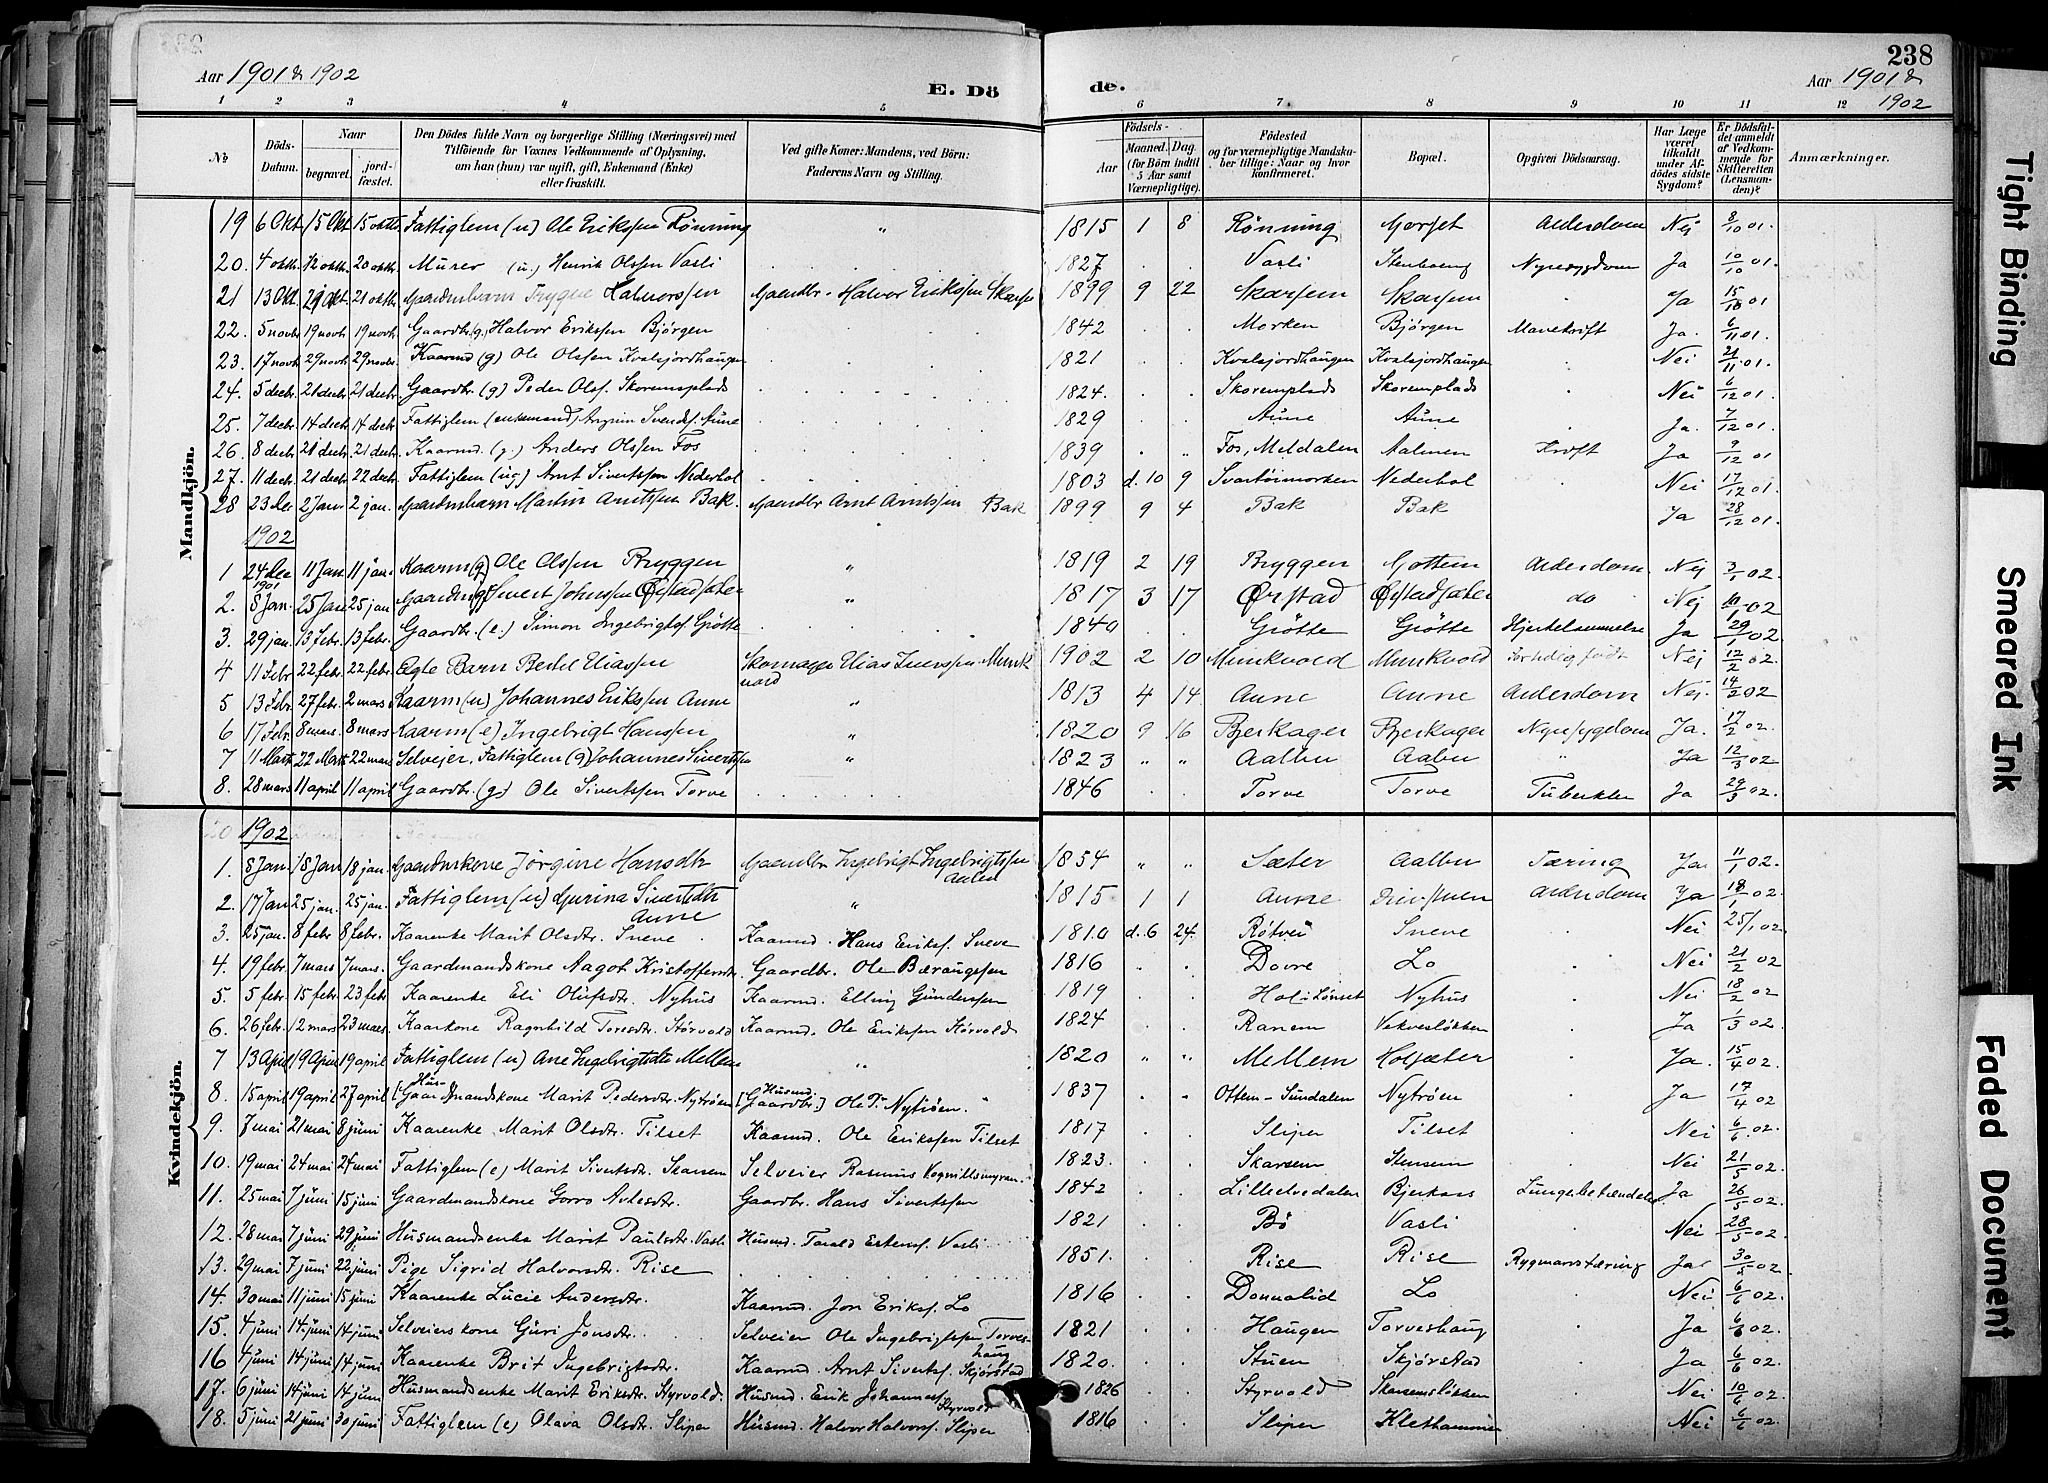 238
Aar 1901 & 1902
E. Döde.
Aar 1901 & 1902
1 2 3 4 5 6 7 8 9 10 11 12
№
Döds-Datum.
Naar
begravet.
jord-fæstet.
Den Dödes fulde Navn og borgerlige Stilling (Næringsvei) med
Tilföiende for Voxnes Vedkommende af Oplysning,
om han (hun) var ugift, gift, Enkemand (Enke)
eller fraskilt.
Ved gifte Koner: Mandens, ved Börn:
Faderens Navn og Stilling.
Födsels-
Aar
Maaned. Dag.
(for Börn indtil
5 Aar samt
Værnepligtige).
Födested
og for værnepligtige Mandska-
ber tillige: Naar og hvor
konfirmeret.
Bopæl.
Opgiven Dödsaarsag.
Har Læge
været
tilkaldt
under Af-
dödes sidste
Sygdom?
Er Dödsfal-
det anmeldt
af Vedkom-
mende for
Skifteretten
(Lensman-
den)?
Anmærkninger.
Mandkjön.
19 6 Okt 15 Okt 15 oktb Fattiglem (u) Ole Eriksen Rönning " 1815 1 8 Rönning Gorset Alderdom Nej 8/10 01.
20. 4 oktb. 12 oktb. 20 oktb. Murer (u.) Henrik Olssen Vasli 1827 Vasli Stenboeng Nyresygdom Ja 10/10 01.
21 13 Okt. 29 Okt 21 oktb Gaardmbarn Trygve Halvorssen Gaardbr. Halvor Erikssen Skarsem 1899 9 22 Skarsem Skarsem Ja 15/10 01
22. 5 novb. 19 novb. 19 novb. Gaardbr. (g.) Halvor Erikssen Bjørgen 1842 Morken Bjørgen Mavekræft Ja. 6/11 01.
23. 17 novb 29 novb. 29 novb. Kaarmd (g) Ole Olssen Kvalsjordhaugen 1821 Kvalsjordhaugen Kvalsjordhaugen Nei 21/11 01.
24. 5 decb. 21 decb. 21 decb. Gaardbr. (g) Peder Olsf. Skoremsplads 1824. Skoremplads Skoremplads Nei 6/12 01.
25. 7 decb. 14 decb 14 decb. Fattiglem (enkemand) Svendsf. Aune 1829 Aune Aune Ja. 7/12 01.
26 8 decb 21 decb. 21 decb. Kaarmd. (g.) Anders Olssen Fos 1839 Fos, Meldalen Aalmen Kræft Ja 9/12 01
27. 11 decb 21 decb 22 decb. Fattiglem (ug) Arnt Sivertssen Nederhol 1803 d. 10 9 Svartøimorken Nederhol Nei 17/12 01.
28 23 Dec 2 Jan 2 jan. Gaardmbarn Martin Arntssen Bak. Gaardbr Arnt Arntssen Bak 1899 9 4 Bak Bak Ja 28/12 01.
1902
1 24 Dec 1901 11 Jan 11 jan. Kaarm (g) Ole Olssen Bryggen " 1819 2 19 Bryggen Gottem Alderdom Nej 3/1 02.
2. 8 Jan. 25 Jan 25 jan Gaardm (g) Sivert Johnssen Ørstadsæter " 1817 3 17 Ørstad Ørstadsæter do Nej 10/1 02
3. 29 jan. 13 febr. 13 febr. Gaardbr. (e.) Simon Ingebrigtsf Grötte 1840 Grötte Grötte Hjertelammelse Ja 29/1 02
4 11 Febr 22 febr. 22 febr. Ægte Barn Bertel Eliassen Skomager Elias Iverssen Munkvold 1902 2 10 Munkvold Munkvold for tidlig født Nej 12/2 02.
5 13 Febr. 27 febr. 2 mars Kaarm (u) Johannes Erikssen Aune " 1813 4 14 Aune Aune Alderdom Nej. 14/2 02
6 17 Febr. 8 mars. 8 mars Kaarm (e) Ingebrigt Hanssen " 1820 9 16 Bjerkager Bjerkager Nyresygdom Ja. 17/2 02.
7 11 Marts 22 Marts 22 mars Selvejer, Fattiglem (g) Johannes Sivertssen " 1823 " " Aalbu Aalbu " Ja 12/3 02
8. 28 mars 11 april 11 april Gaardbr. (g.) Ole Sivertssen Torve 1846 Torve Torve Tuberkler Ja 29/3 02.
Kvindekjön.
1902
1. 8 Jan. 18 Jan 18 jan. Gaardmkone Jørgine Hansdtr Gaardbr Ingebrigt Ingebrigtssen Aalbu 1854 " " Sæter Aalbu Tæring Ja 11/1 02.
2. 17 Jan 25 jan. 25 jan. Fattiglem (u) Gjurina Sivertsdtr Aune " 1815 1 1 Aune Alderdom Ja 18/1 02.
3. 25 jan. 8 febr 8 febr. Kaarenke Marit Olsdtr. Sneve Kaarmd. Hans Eriksf. Sneve 1810 d. 6 24. Rötvei Sneve Nei 25/1 02
4. 19 febr. 7 mars 7 mars. Gaardmandskone Aagot Kristoffersdtr. Gaardbr. Ole Bæraugssen 1816 Dovre Lo Nei 21/2 02
5. 5 febr. 15 febr. 23 febr Kaarenke Eli Olufsdtr. Nyhus Kaarmd. Elling Gunderssen 1819 Hol i Lønset Nyhus Nei 18/2 02
6. 26 febr. 12 mars 23 mars. Kaarkone Ragnhild Toresdtr. Störvold Kaarmd. Ole Erikssen Störvold 1824 Ranem Vekveslökken Ja 1/3 02.
7 13 April 19 April 19 april Fattiglem (u) Ane Ingebrigtsdtr Mellem " 1820 " " Mellem Holsæter Ja. 15/4 02.
8. 15 april 19 april 27 april [Gaar Hus-]dmandskone Marit Pedersdtr. Nytröen [Gaardbr.] Husmd. Ole P. Nytröen. 1837 Ottem - Sundalen Nytröen Ja 17/4 02
9. 7 mai 21 mai 8 juni Kaarenke Marit Olsdtr. Tilset Kaarmd. Ole Erikssen Tilset 1817 Sliper Tilset Nei 6/6. 02.
10. 19 mai 24 mai 24 mai Fattiglem (e) Marit Sivertsdtr. Skansem Selveier Rasmus Vognillsmyren. 1823. Skarsem Stensem Nei 21/5 02.
11. 25 mai 7 juni 15 juni Gaardmandskone Gorro Avlesdtr. Gaardbr. Hans Sivertssen 1842 Lilleelvedalen Bjerkaas Lungebetændelse Ja. 26/5 02.
12. 28 mai 7 juni 29 juni Husmandsenke Marit Paulsdtr. Vasli Husmd. Torald Estensf. Vasli 1821 Bö Vasli Nei 28/5 02.
13. 29 mai 7 juni 22 juni Pige Sigrid Halvorsdtr. Rise 1851. Rise Rise Rygmarvstæring Ja 30/5 02.
14. 30 mai 11 juni 15 juni Kaarenke Lucie Andersdtr. Kaarmd. Jon Eriksf. Lo 1816 Donnalid Lo Nei 6/6 02.
15. 4 juni 14 juni 14 juni Selveierskone Guri Jonsdtr. Selveier Ole Ingebrigtssen Torveshaug 1821 Haugen Torveshaug Ja 6/6 02.
16 4 juni 14 juni 14 juni Kaarenke Brit Ingebrigtsdtr. Kaarmd. Arnt Sivertsf. Skjörstad 1820. Stuen Skjörstad Ja 6/6 02.
17. 6 juni 14 juni 14 juni Husmandsenke Marit Eriksdtr. Styrvold. Husmd. Erik Johannesf. Styrvold 1826 Styrvold Skansemslökken Nei 10/6 02.
18. 5 juni 21 juni 30 juni Fattiglem (e) Olava Olsdtr. Sliper Husmd. Halvor Halvorsf. Sliper 1816 Sliper Klethammer Nei 6/6 02.
Tight Binding
Smeared Ink
Faded Document